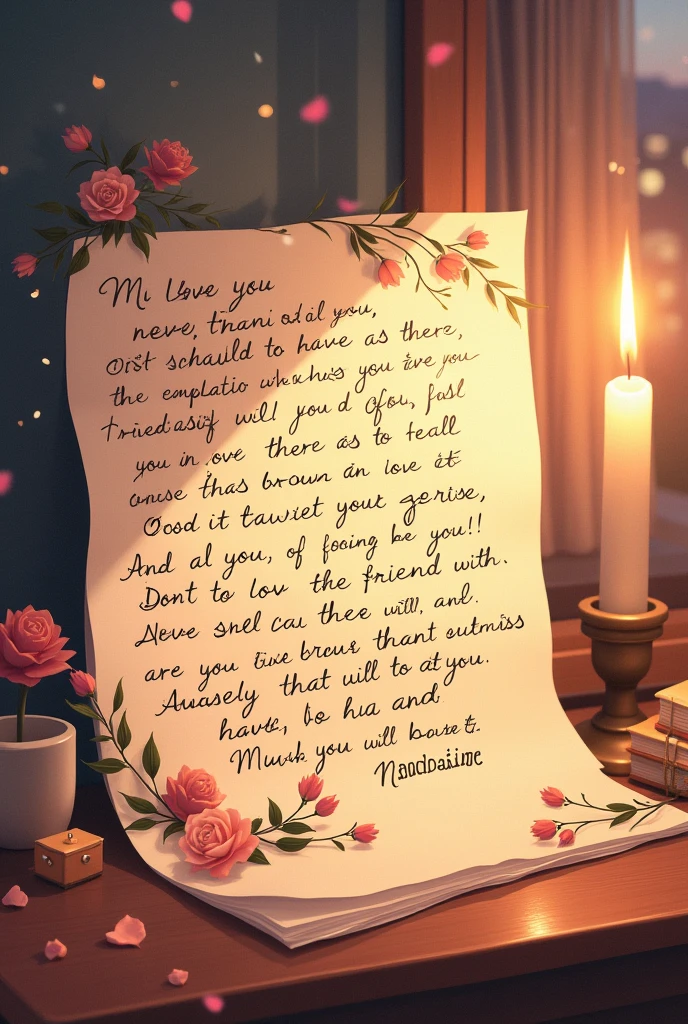 Mu Love you
neve, thani od al you,
Oist schauld to have as there,
the emplatio you live you
will you d Ofou, fasl
you in ove there as to teall
thas brown an love at
Oosd it tawiet your gerise,
And al you, of fooing be you!!
Dont to lov the friend with.
Aleve snel cau thee will, and.
are you live breus thant eutmiss
Auasely that will to at you.
have, to hua and
Muuk you will bouse t.